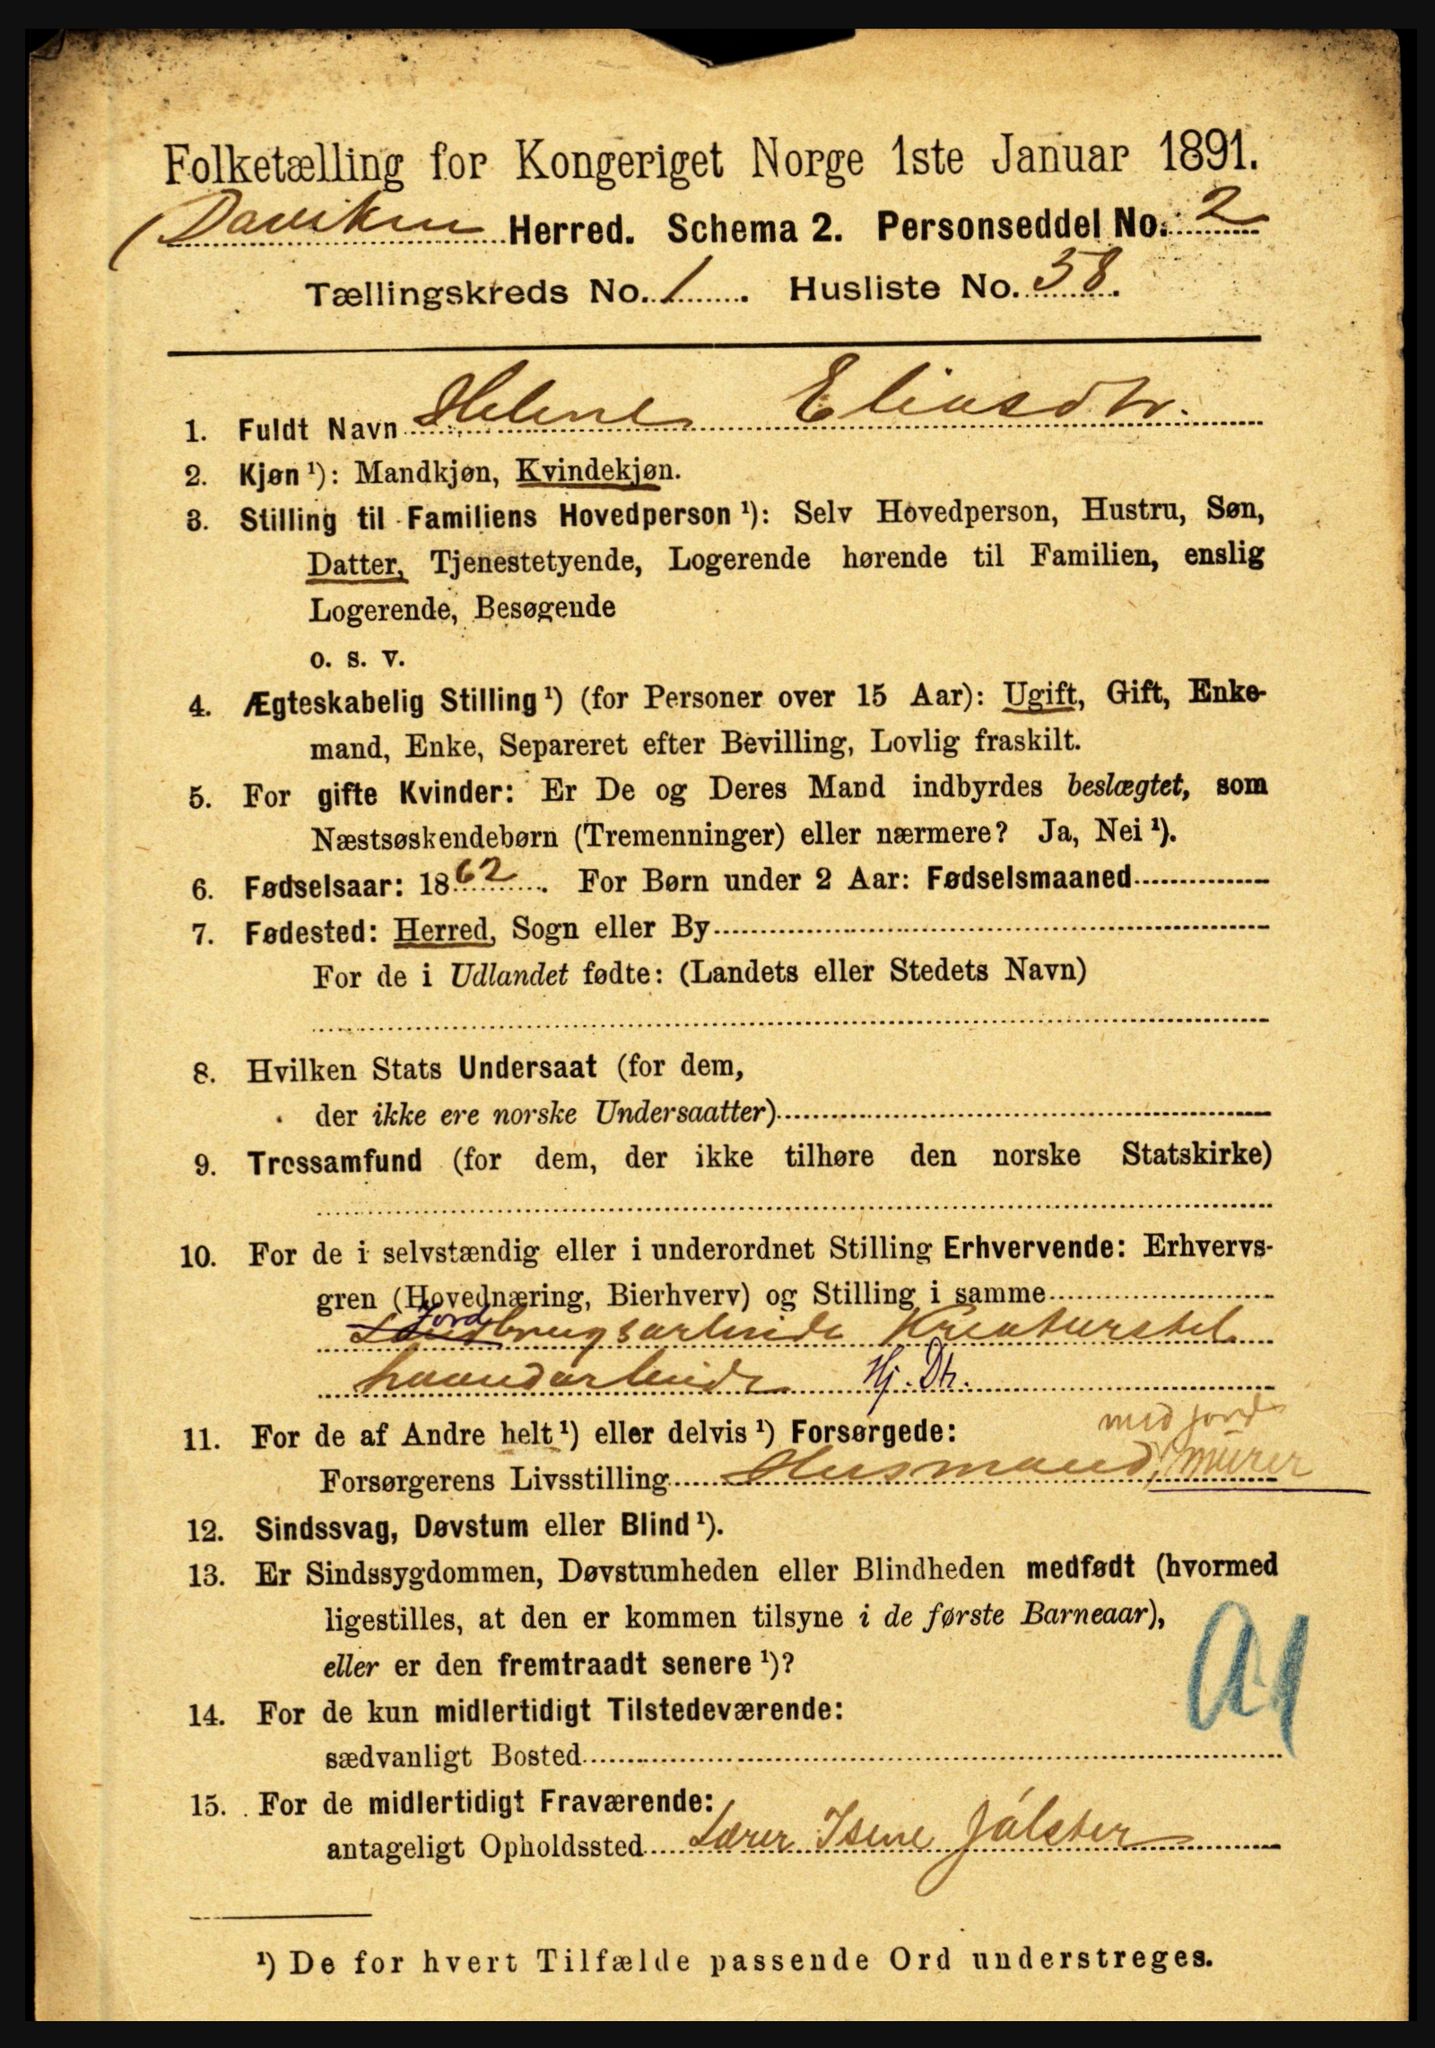 Folketælling for Kongeriget Norge 1ste Januar 1891.
Daviken Herred. Schema 2. Personseddel No. 2
Tællingskreds No. 1. Husliste No. 58.
1. Fuldt Navn Helene Eliasdtr.
2. Kjøn ¹): Mandkjøn, Kvindekjøn.
3. Stilling til Familiens Hovedperson ¹): Selv Hovedperson, Hustru, Søn,
Datter, Tjenestetyende, Logerende hørende til Familien, enslig
Logerende, Besøgende
o. s. v.
4. Ægteskabelig Stilling ¹) (for Personer over 15 Aar): Ugift, Gift, Enke-
mand, Enke, Separeret efter Bevilling, Lovlig fraskilt.
5. For gifte Kvinder: Er De og Deres Mand indbyrdes beslægtet, som
Næstsøskendebørn (Tremenninger) eller nærmere? Ja, Nei ¹).
6. Fødselsaar: 1862. For Børn under 2 Aar: Fødselsmaaned
7. Fødested: Herred, Sogn eller By
For de i Udlandet fødte: (Landets eller Stedets Navn)
8. Hvilken Stats Undersaat (for dem,
der ikke ere norske Undersaatter)
9. Trossamfund (for dem, der ikke tilhøre den norske Statskirke)
10. For de i selvstændig eller i underordnet Stilling Erhvervende: Erhvervs-
gren (Hovednæring, Bierhverv) og Stilling i samme
Jord
Landbrugsarbeide Kreaturstel
haandarbeide Hj. Dtr.
11. For de af Andre helt ¹) eller delvis ¹) Forsørgede:
med jord
Forsørgerens Livsstilling Husmand, murer
12. Sindssvag, Døvstum eller Blind ¹).
13. Er Sindssygdommen, Døvstumheden eller Blindheden medfødt (hvormed
ligestilles, at den er kommen tilsyne i de første Barneaar),
eller er den fremtraadt senere ¹)?
A1
14. For de kun midlertidigt Tilstedeværende:
sædvanligt Bosted
15. For de midlertidigt Fraværende:
antageligt Opholdssted Lærer Isene Jølster
¹) De for hvert Tilfælde passende Ord understreges.